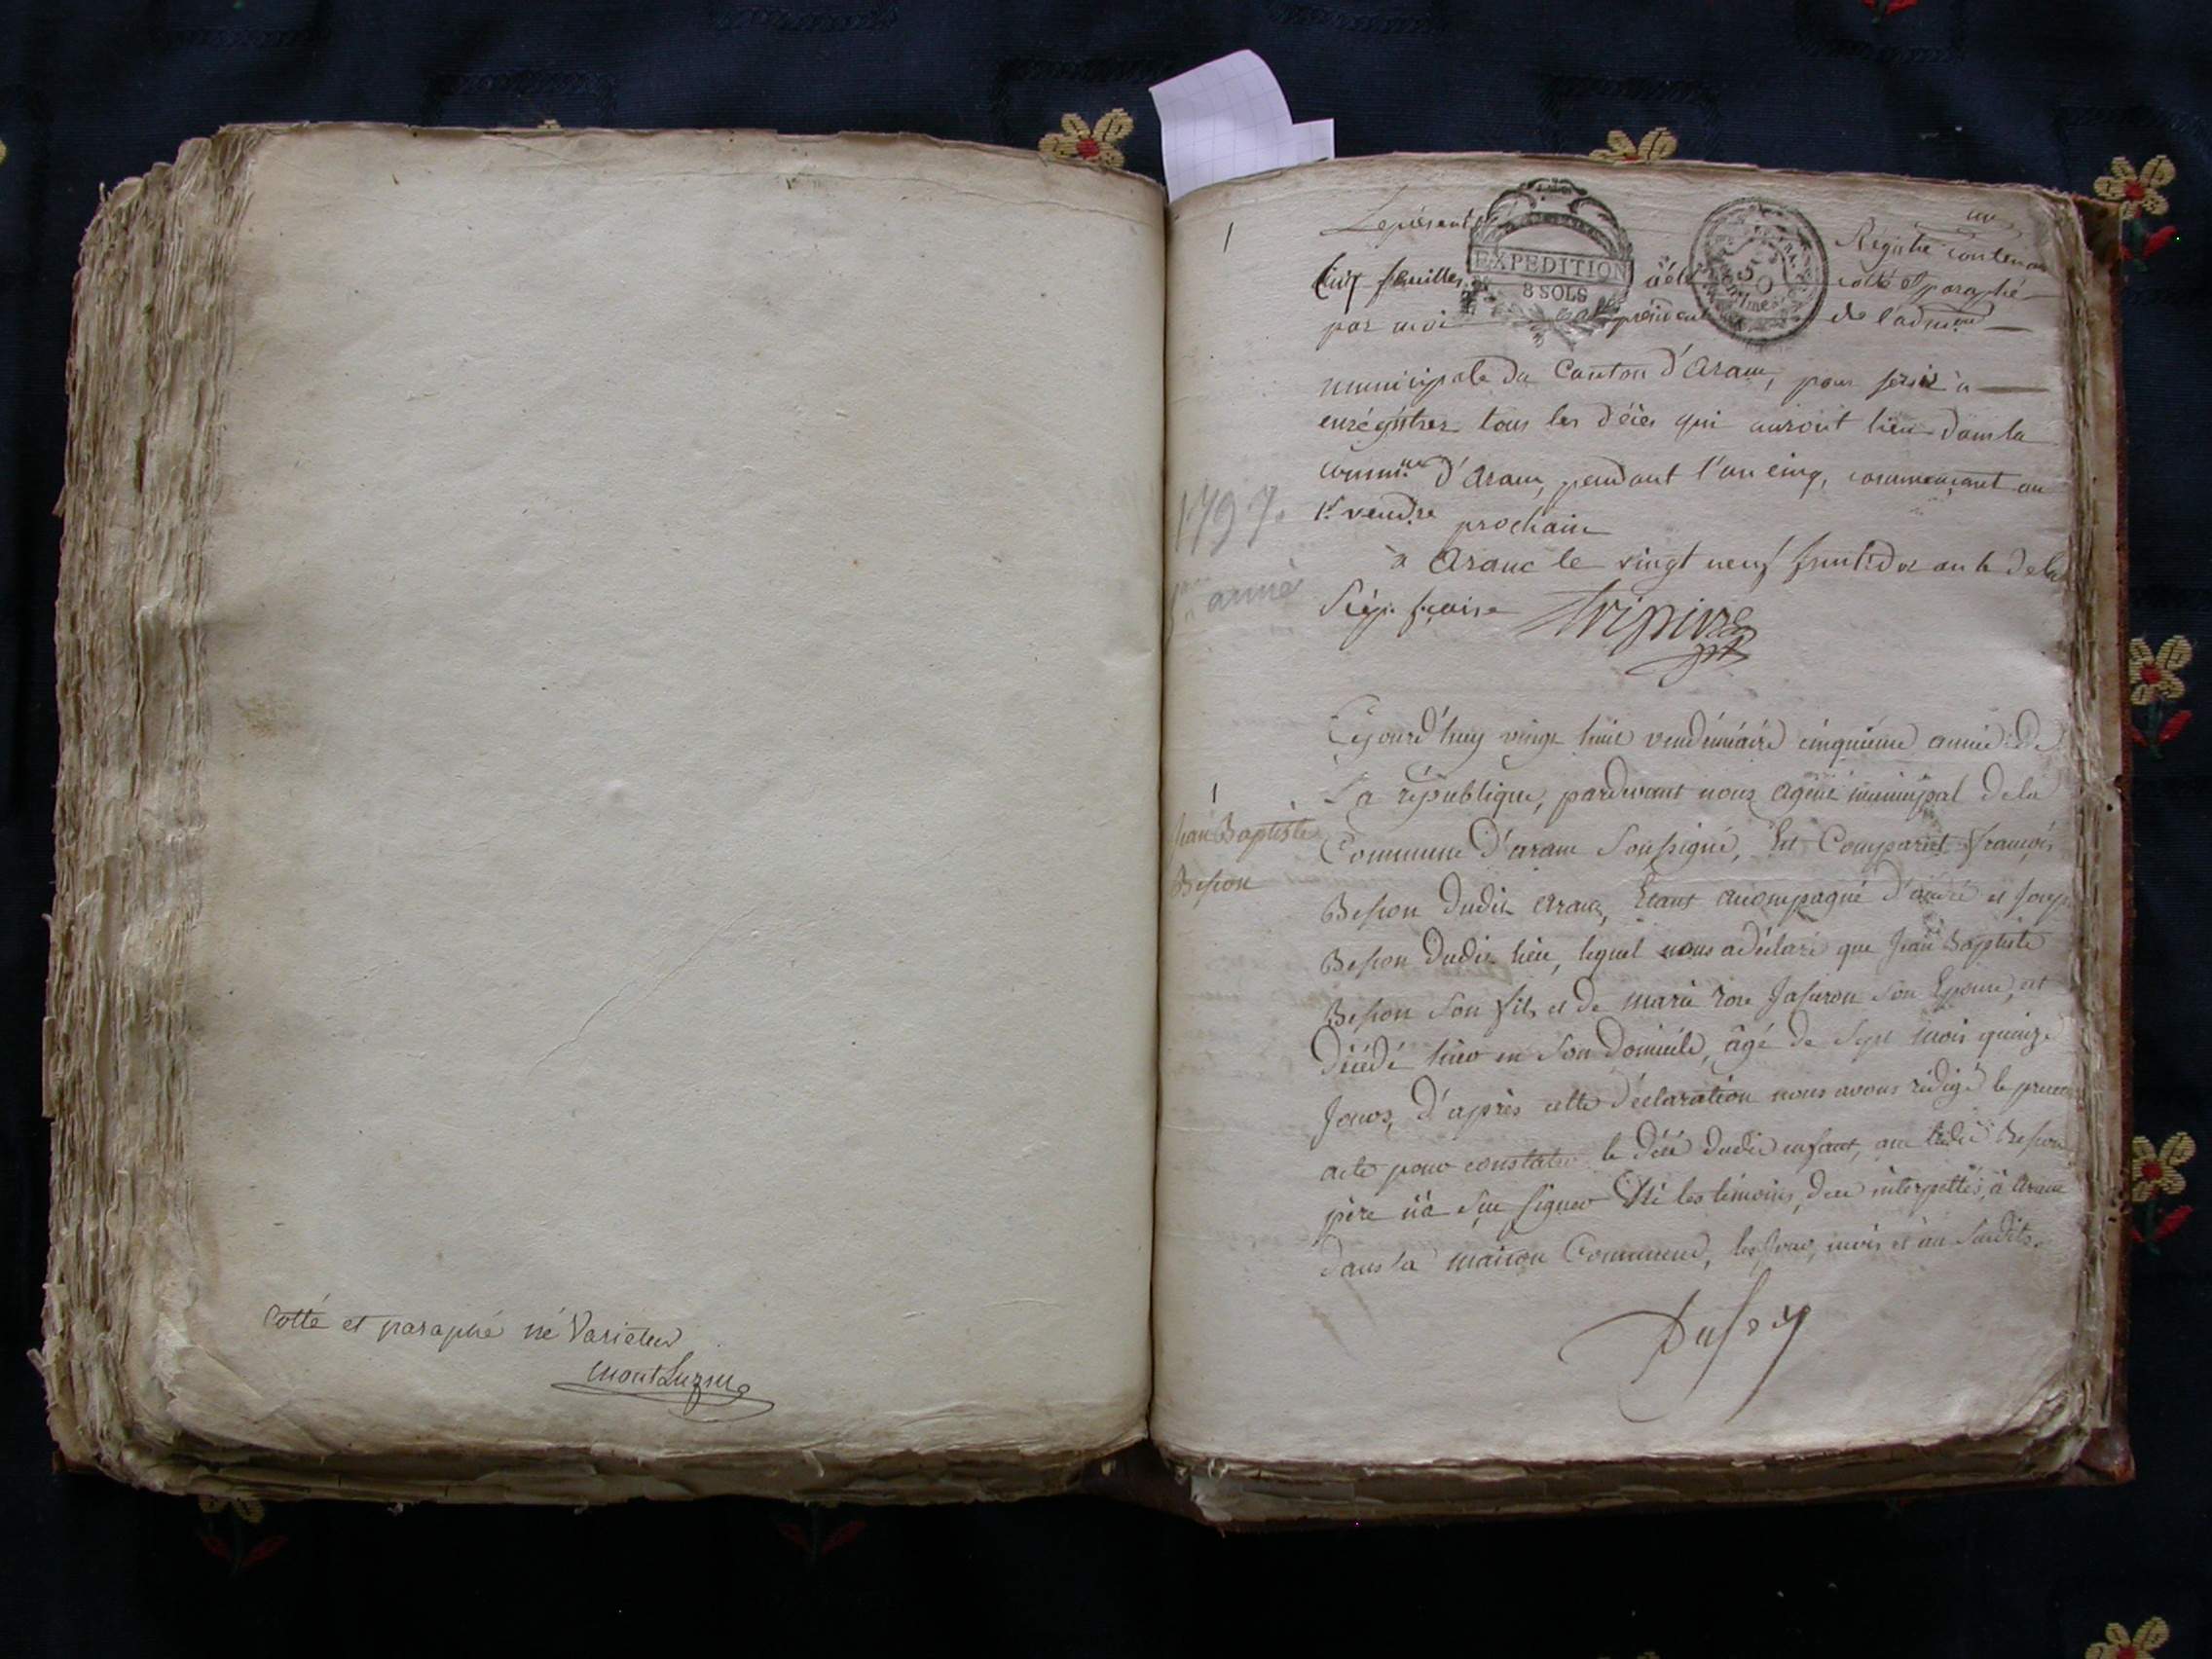 Cotté et paraphé né Varietur
montluzin
1
un
Le présent Registre contenant
Cinq feuilles a été cotté et paraphé
EXPEDITION
8 SOLS
50
par moi président de l'adm.on
municipale du Canton d'Aranc, pour servir à
enrégistrer tous les décès qui auront lieu dans la
commune d'Aranc, pendant l'an cinq, commençant au
1.er vend.re prochain
à Aranc le vingt neuf fructidor an 4 de la
Rép. fçaise
1797.
5me année
Cejourd'huy vingt huit vendémiaire cinquieme année de
La république, pardevant nous agent municipal de la
1
Jean Baptiste
Besson
Commune d'aranc Soussigné, Est Comparut françois
Besson dudit aranc, Etant acompagné d'andré et Joseph
Besson dudit lieu, lequel nous a déclaré que Jean Baptiste
Besson son fils et de marie rose Savaron son Epouse, est
Décédé hier en Son Domicile, âgé de Sept mois quinze
Jours, D'après cette Déclaration nous avons rédigé le présent
acte pour constater le Décé dudit enfant, ou ledit Besson
père n'a Sçu signer Ni les témoins, de ce interpellés, à aranc
Dans la maison Commune, les Jour, mois et an Susdits.
Dufrey